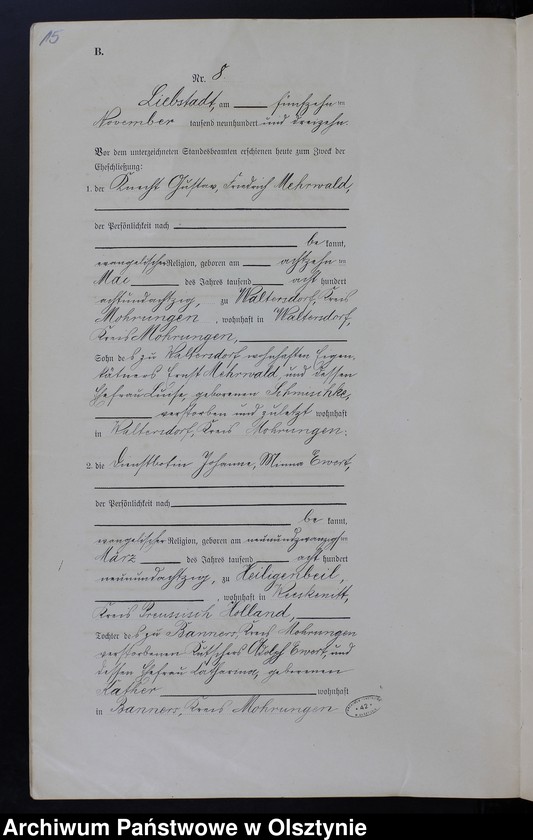 15
B.
Nr. 8.
Liebstadt, am fünfzehn ten
November tausend neunhundert und dreizehn.
Vor dem unterzeichneten Standesbeamten erschienen heute zum Zweck der
Eheschließung:
1. der Knecht Gustav, Friedrich Mehrwald,
der Persönlichkeit nach
be kannt,
evangelischer Religion, geboren am achtzehn ten
Mai des Jahres tausend acht hundert
achtundachtzig, zu Waltersdorf, Kreis
Mohrungen, wohnhaft in Waltersdorf,
Kreis Mohrungen,
Sohn des zu Waltersdorf wohnhaften Eigen-
kätners Ernst Mehrwald und dessen
Ehefrau Luise, geborenen Schmischke,
verstorben und zuletzt wohnhaft
in Waltersdorf, Kreis Mohrungen.
2. die Dienstbotin Johanne, Minna Ewert,
der Persönlichkeit nach
be kannt,
evangelischer Religion, geboren am neunundzwanzigsten
März des Jahres tausend acht hundert
neunundachtzig, zu Heiligenbeil,
, wohnhaft in
Kreis Preussisch Holland,
Tochter des zu Banners, Kreis Mohrungen
verstorbenen Kutschers Adolph Ewert, und
dessen Ehefrau Katharina, geborenen
wohnhaft
in Banners, Kreis Mohrungen
* 42 *
Archiwum Państwowe w Olsztynie